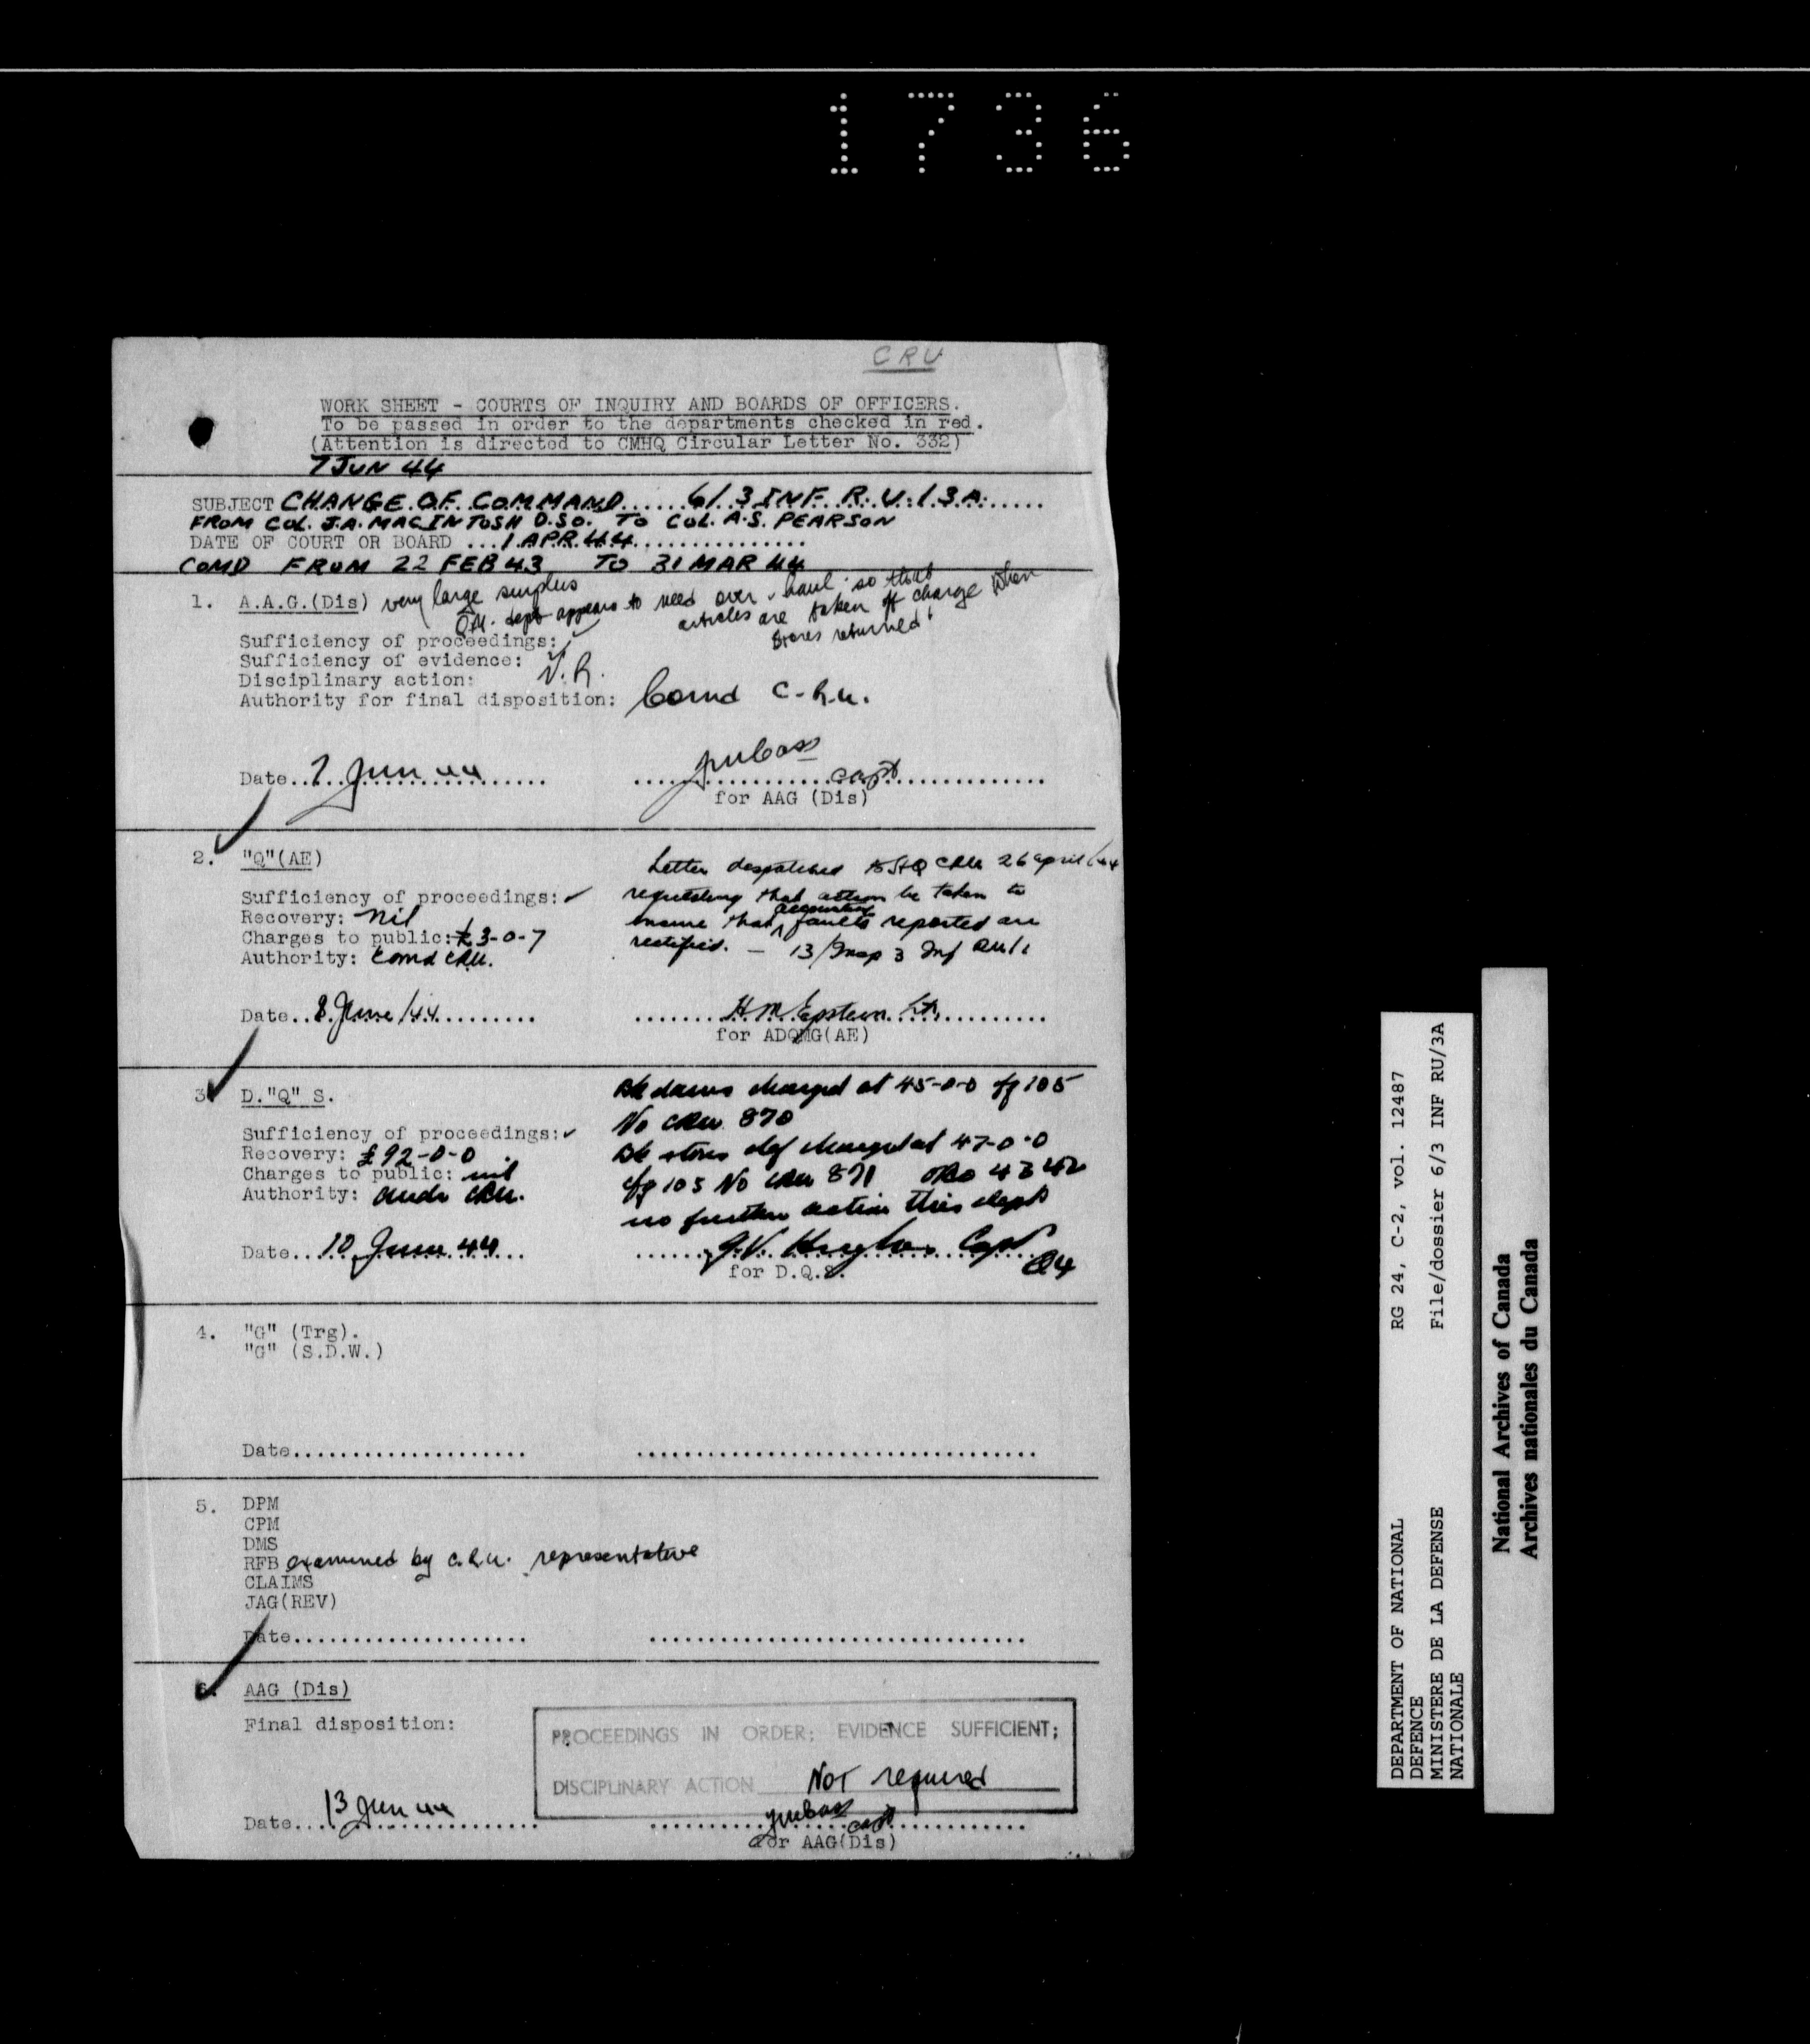 1736
CRU
WORK SHEET - COURTS OF INQUIRY AND BOARDS OF OFFICERS.
To be passed in order to the departments checked in red.
(Attention is directed to CMHQ Circular Letter No. 332)
7 JUN 44
SUBJECT CHANGE OF COMMAND......6/3 INF. R.U./3A......
FROM COL. J.A. MACINTOSH D.SO. TO COL. A.S. PEARSON
DATE OF COURT OR BOARD ...1.APR.44...............
COMD FROM 22 FEB 43 TO 31 MAR 44
1. A.A.G.(Dis) very large surplus
Q.M. dept appears to need over-haul so that
articles are taken off charge when
stores returned!
Sufficiency of proceedings: ✓
Sufficiency of evidence:
Disciplinary action: N.R.
Authority for final disposition: Comd C.R.U.
Date..7 Jun 44.......
Capt
for AAG (Dis)
2. "Q"(AE)
Letter despatched to HQ CRU 26 April/44
requesting that action be taken to
ensure that accounting faults reported are
rectified. — 13/Insp 3 Inf RU/1
Sufficiency of proceedings: ✓
Recovery: Nil
Charges to public: £3-0-7
Authority: Comd CRU.
Date..8.June/44.........
H M Epstein Lt.
for ADQMG(AE)
3. D."Q" S.
charged at 45-0-0
105
No CRU 870
stores def charged at 47-0-0
105 No CRU 871 RO 4342
no further action this dept
Sufficiency of proceedings: ✓
Recovery: £92-0-0
Charges to public: nil
Authority: CRU.
Date...10 June 44...
G.V. Hughes Capt
Q4
for D.Q.S.
4. "G" (Trg).
"G" (S.D.W.)
Date....................
5. DPM
CPM
DMS
RFB examined by C.R.U. representative
CLAIMS
JAG(REV)
Date....................
6. AAG (Dis)
Final disposition:
PROCEEDINGS IN ORDER; EVIDENCE SUFFICIENT;
DISCIPLINARY ACTION Not required
Date...13 Jun 44.......
Capt
for AAG(Dis)
DEPARTMENT OF NATIONAL DEFENCE
MINISTERE DE LA DEFENSE NATIONALE
RG 24, C-2, vol. 12487
File/dossier 6/3 INF RU/3A
National Archives of Canada
Archives nationales du Canada